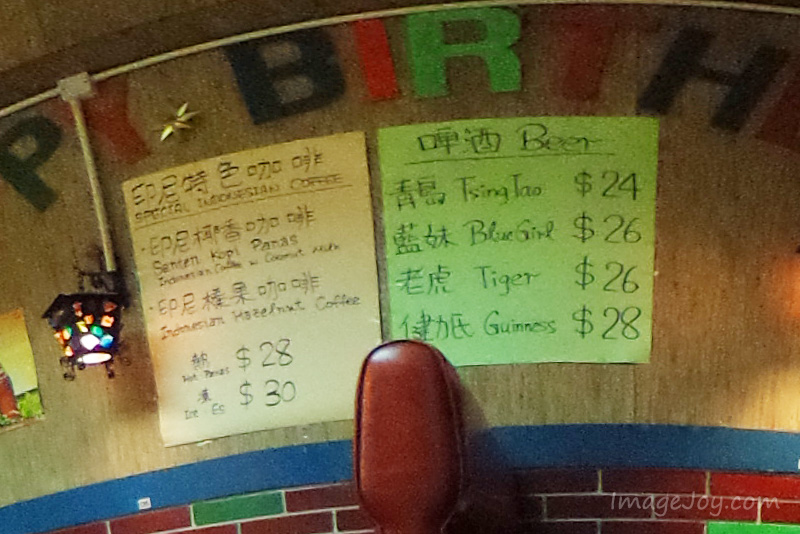 PY BIRTH
印尼特色咖啡
SPECIAL INDONESIAN COFFEE
·印尼椰香咖啡
Santen Kopi Panas
Indonesian Coffee w Coconut Milk
·印尼榛果咖啡
Indonesian Hazelnut Coffee
熱 $28
Hot Panas
凍 $30
Ice Es
啤酒 Beer
青島 TsingTao $24
藍妹 BlueGirl $26
老虎 Tiger $26
健力氏 Guinness $28
ImageJoy.com